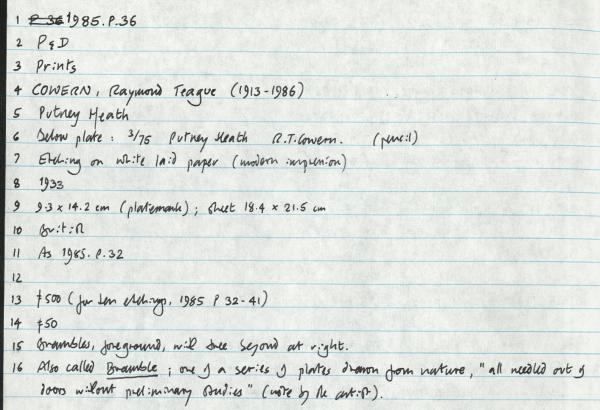 1 P 36 1985.P.36
2 P&D
3 Prints
4 COWERN, Raymond Teague (1913-1986)
5 Putney Heath
6 Below plate: 3/75 Putney Heath R.T. Cowern. (pencil)
7 Etching on white laid paper (modern impression)
8 1933
9 9.3 x 14.2 cm (platemark); sheet 18.4 x 21.5 cm
10 British
11 As 1985.P.32
12
13 £500 (for ten etchings, 1985 P 32-41)
14 £50
15 Brambles, foreground, with tree beyond at right.
16 Also called Bramble; one of a series of plates drawn from nature, "all needled out of
doors without preliminary studies" (note by the artist).